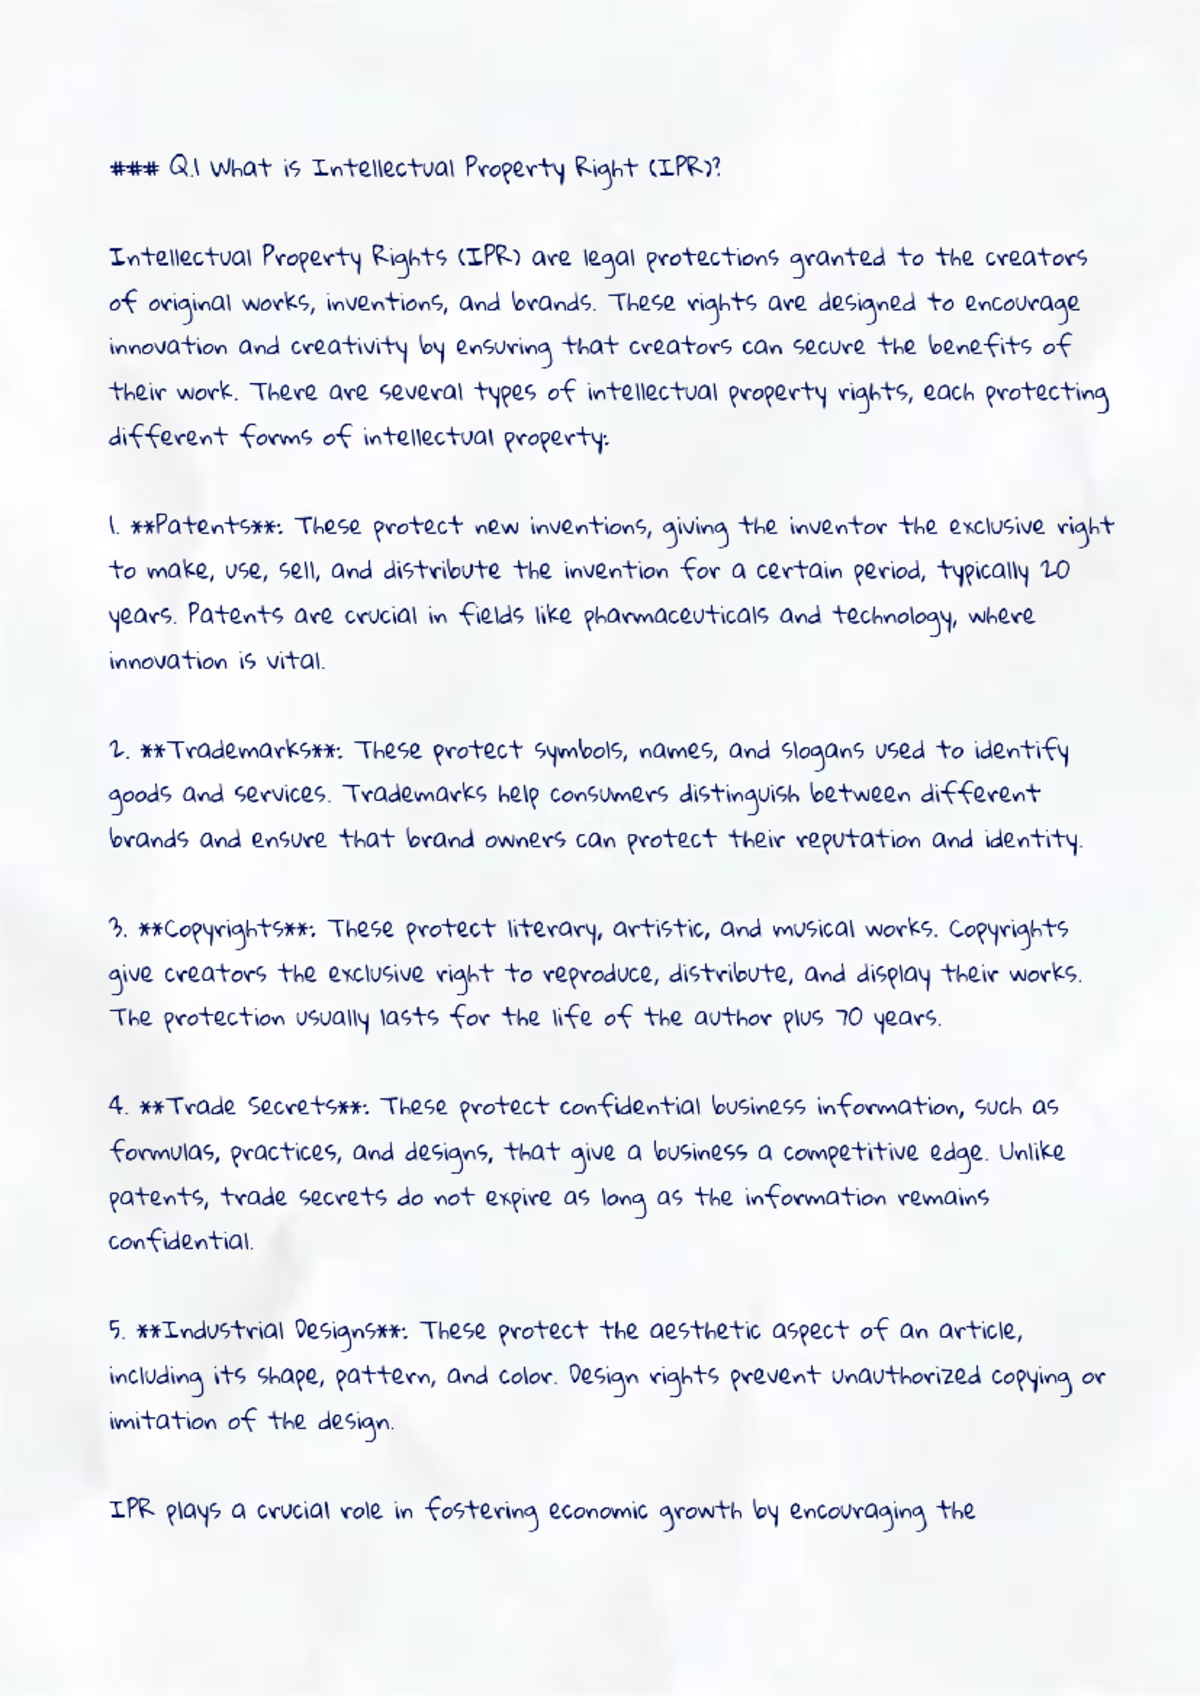 ### Q.1 What is Intellectual Property Right (IPR)?
Intellectual Property Rights (IPR) are legal protections granted to the creators
of original works, inventions, and brands. These rights are designed to encourage
innovation and creativity by ensuring that creators can secure the benefits of
their work. There are several types of intellectual property rights, each protecting
different forms of intellectual property:
1. **Patents**: These protect new inventions, giving the inventor the exclusive right
to make, use, sell, and distribute the invention for a certain period, typically 20
years. Patents are crucial in fields like pharmaceuticals and technology, where
innovation is vital.
2. **Trademarks**: These protect symbols, names, and slogans used to identify
goods and services. Trademarks help consumers distinguish between different
brands and ensure that brand owners can protect their reputation and identity.
3. **Copyrights**: These protect literary, artistic, and musical works. Copyrights
give creators the exclusive right to reproduce, distribute, and display their works.
The protection usually lasts for the life of the author plus 70 years.
4. **Trade Secrets**: These protect confidential business information, such as
formulas, practices, and designs, that give a business a competitive edge. Unlike
patents, trade secrets do not expire as long as the information remains
confidential.
5. **Industrial Designs**: These protect the aesthetic aspect of an article,
including its shape, pattern, and color. Design rights prevent unauthorized copying or
imitation of the design.
IPR plays a crucial role in fostering economic growth by encouraging the